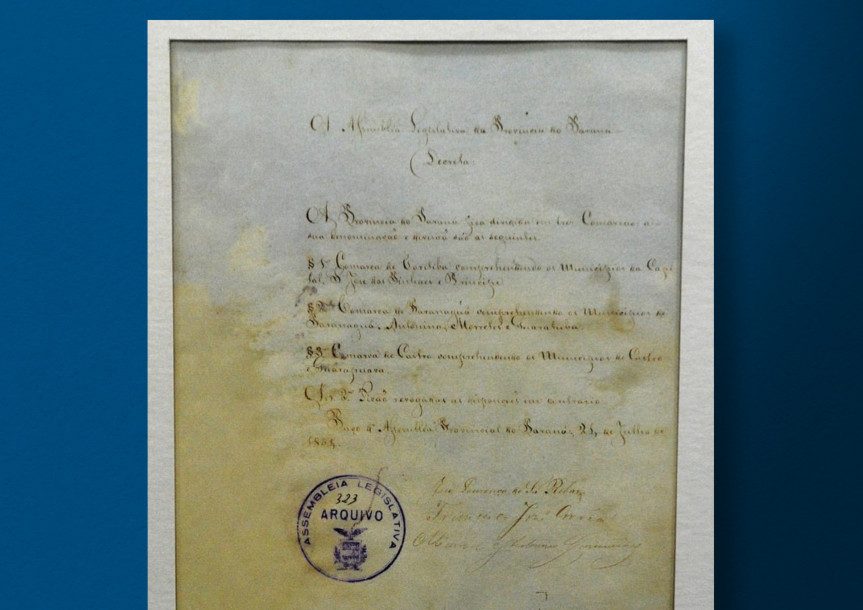 A Assemblea Legislativa da Provincia do Paraná
Decreta
A Provincia do Paraná fica dividida em tres Comarcas a
sua denominação e divisão são as seguintes
§ 1º Comarca de Coritiba comprehendendo os Municipios da Capi
tal, S José dos Pinhaes e Principe
§ 2º Comarca de Paranaguá comprehendendo os Municipios de
Paranaguá, Antonina, Morretes e Guaratuba
§ 3º Comarca de Castro comprehendendo os Municipios de Castro
e Guarapuava
Art 2º Ficão revogadas as disposições em contrario
Paço da Assemblea Provincial do Paraná, de Julho de
1854
ASSEMBLEIA LEGISLATIVA
323
ARQUIVO
José Lourenço de Sá Ribas
Francisco José Corrêa